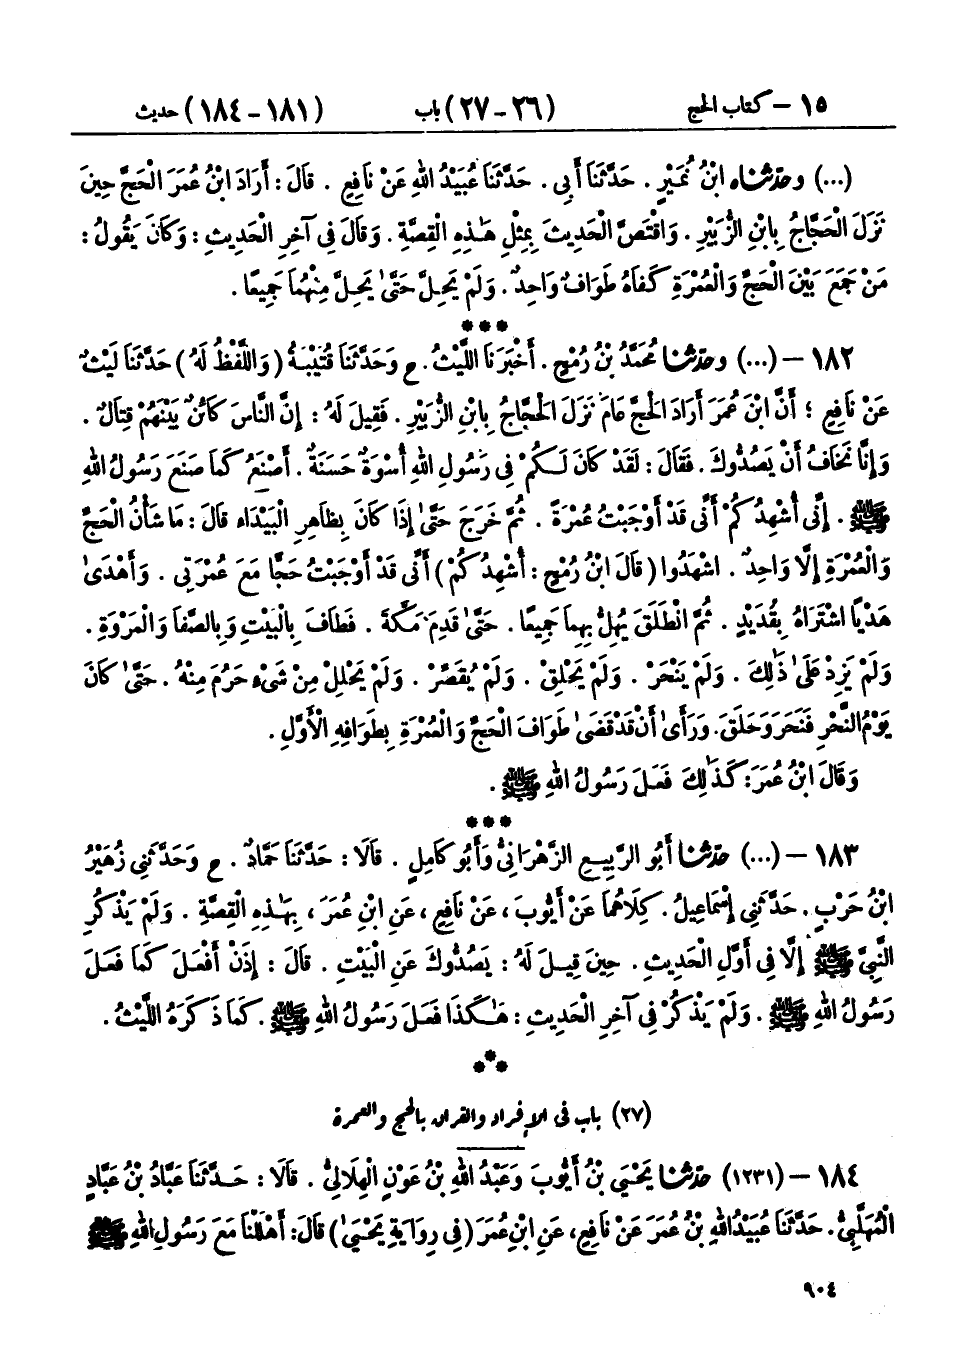 ١٥ - كتاب الحج (٢٦ - ٢٧) باب (١٨١ - ١٨٤) حديث
(...) وحدثناه ابْنُ نُمَيْرٍ . حَدَّثَنَا أَبِي . حَدَّثَنَا عُبَيْدُ اللهِ عَنْ نَافِعٍ . قَالَ : أَرَادَ ابْنُ عُمَرَ الْحَجَّ حِينَ
نَزَلَ الْحَجَّاجُ بِابْنِ الزُّبَيْرِ . وَاقْتَصَّ الْحَدِيثَ بِمِثْلِ هَٰذِهِ الْقِصَّةِ . وَقَالَ فِي آخِرِ الْحَدِيثِ : وَكَانَ يَقُولُ :
مَنْ جَمَعَ بَيْنَ الْحَجِّ وَالْعُمْرَةِ كَفَاهُ طَوَافٌ وَاحِدٌ . وَلَمْ يَحِلَّ حَتَّىٰ يَحِلَّ مِنْهُمَا جَمِيعًا .
***
١٨٢ - (...) وحدثنا مُحَمَّدُ بْنُ رُمْحٍ . أَخْبَرَنَا اللَّيْثُ . ح وَحَدَّثَنَا قُتَيْبَةُ ( وَاللَّفْظُ لَهُ ) حَدَّثَنَا لَيْثٌ
عَنْ نَافِعٍ ؛ أَنَّ ابْنَ عُمَرَ أَرَادَ الْحَجَّ عَامَ نَزَلَ الْحَجَّاجُ بِابْنِ الزُّبَيْرِ . فَقِيلَ لَهُ : إِنَّ النَّاسَ كَائِنٌ بَيْنَهُمْ قِتَالٌ .
وَإِنَّا نَخَافُ أَنْ يَصُدُّوكَ . فَقَالَ : لَقَدْ كَانَ لَكُمْ فِي رَسُولِ اللهِ أُسْوَةٌ حَسَنَةٌ . أَصْنَعُ كَمَا صَنَعَ رَسُولُ اللهِ
ﷺ . إِنِّي أُشْهِدُكُمْ أَنِّي قَدْ أَوْجَبْتُ عُمْرَةً . ثُمَّ خَرَجَ حَتَّىٰ إِذَا كَانَ بِظَاهِرِ الْبَيْدَاءِ قَالَ : مَا شَأْنُ الْحَجِّ
وَالْعُمْرَةِ إِلَّا وَاحِدٌ . اشْهَدُوا ( قَالَ ابْنُ رُمْحٍ : أُشْهِدُكُمْ ) أَنِّي قَدْ أَوْجَبْتُ حَجًّا مَعَ عُمْرَتِي . وَأَهْدَىٰ
هَدْيًا اشْتَرَاهُ بِقُدَيْدٍ . ثُمَّ انْطَلَقَ يُهِلُّ بِهِمَا جَمِيعًا . حَتَّىٰ قَدِمَ مَكَّةَ . فَطَافَ بِالْبَيْتِ وَبِالصَّفَا وَالْمَرْوَةِ .
وَلَمْ يَزِدْ عَلَىٰ ذَٰلِكَ . وَلَمْ يَنْحَرْ . وَلَمْ يَحْلِقْ . وَلَمْ يُقَصِّرْ . وَلَمْ يَحْلِلْ مِنْ شَيْءٍ حَرُمَ مِنْهُ . حَتَّىٰ كَانَ
يَوْمُ النَّحْرِ فَنَحَرَ وَحَلَقَ . وَرَأَىٰ أَنْ قَدْ قَضَىٰ طَوَافَ الْحَجِّ وَالْعُمْرَةِ بِطَوَافِهِ الْأَوَّلِ .
وَقَالَ ابْنُ عُمَرَ : كَذَٰلِكَ فَعَلَ رَسُولُ اللهِ ﷺ .
***
١٨٣ - (...) حدثنا أَبُو الرَّبِيعِ الزَّهْرَانِيُّ وَأَبُو كَامِلٍ . قَالَا : حَدَّثَنَا حَمَّادٌ . ح وَحَدَّثَنِي زُهَيْرُ
ابْنُ حَرْبٍ . حَدَّثَنِي إِسْمَاعِيلُ . كِلَاهُمَا عَنْ أَيُّوبَ ، عَنْ نَافِعٍ ، عَنِ ابْنِ عُمَرَ ، بِهَٰذِهِ الْقِصَّةِ . وَلَمْ يَذْكُرِ
النَّبِيَّ ﷺ إِلَّا فِي أَوَّلِ الْحَدِيثِ . حِينَ قِيلَ لَهُ : يَصُدُّوكَ عَنِ الْبَيْتِ . قَالَ : إِذَنْ أَفْعَلَ كَمَا فَعَلَ
رَسُولُ اللهِ ﷺ . وَلَمْ يَذْكُرْ فِي آخِرِ الْحَدِيثِ : هَٰكَذَا فَعَلَ رَسُولُ اللهِ ﷺ . كَمَا ذَكَرَهُ اللَّيْثُ .
***
(٢٧) باب في الإفراد والقران بالحج والعمرة
١٨٤ - (١٢٣١) حدثنا يَحْيَىٰ بْنُ أَيُّوبَ وَعَبْدُ اللهِ بْنُ عَوْنٍ الْهِلَالِيُّ . قَالَا : حَدَّثَنَا عَبَّادُ بْنُ عَبَّادٍ
الْمُهَلَّبِيُّ . حَدَّثَنَا عُبَيْدُ اللهِ بْنُ عُمَرَ عَنْ نَافِعٍ ، عَنِ ابْنِ عُمَرَ ( فِي رِوَايَةِ يَحْيَىٰ ) قَالَ : أَهْلَلْنَا مَعَ رَسُولِ اللهِ ﷺ
٩٠٤